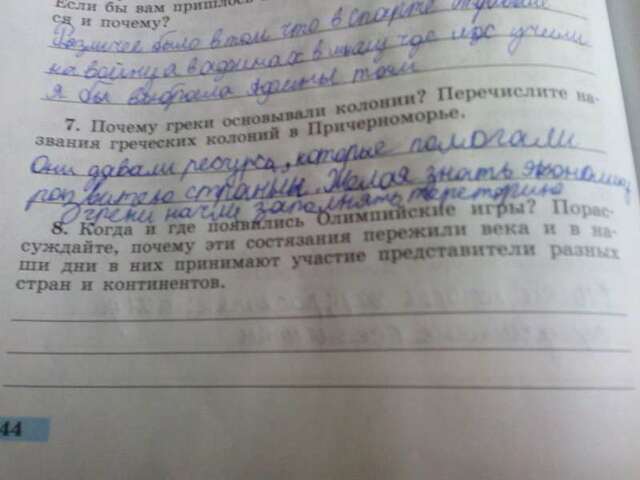 Если бы вам пришлось
ся и почему?
Различее было в том что в Спарте отдавали
на войну а в афинах в школу где их учили
Я бы выбрала Афины
7. Почему греки основывали колонии? Перечислите на-
звания греческих колоний в Причерноморье.
Они давали ресурса, которые помогали
страны. знать
греки начли заполнять тереторию
8. Когда и где появились Олимпийские игры? Порас-
суждайте, почему эти состязания пережили века и в на-
ши дни в них принимают участие представители разных
стран и континентов.
44